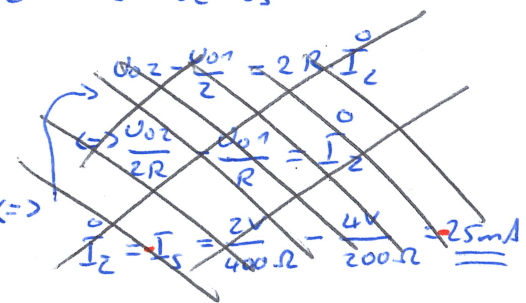 U02 - U01/2 = 2R I̊2
<=> U02/2R - U01/R = I̊2
<=>
I̊2 = -I5 = 2V/400Ω - 4V/200Ω = -25mA